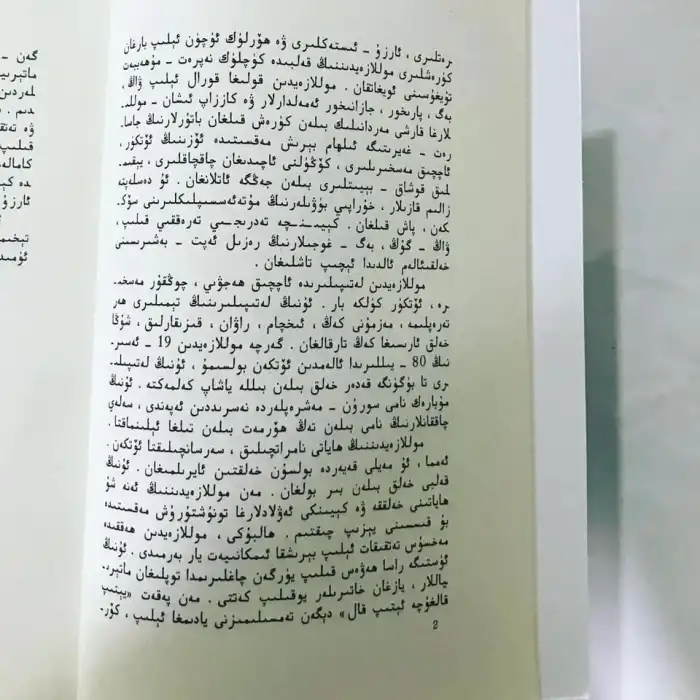 رەتلىرى ، ئارزۇ - ئىستەكلىرى ۋە ھۆرلۈك ئۈچۈن ئېلىپ بارغان
كۈرەشلىرى موللازەيدىننىڭ قەلبىدە كۈچلۈك نەپرەت - مۇھەببەت
تۇيغۇسىنى ئويغاتقان . موللازەيدىن قولىغا قورال ئېلىپ ۋاڭ،
بەگ ، پارىخور ، جازانىخور ئەمەلدارلار ۋە كاززاپ ئىشان - موللى-
لارغا قارشى مەردانىلىك بىلەن كۈرەش قىلغان باتۇرلارنىڭ جاسا-
رەت - غەيرىتىگە ئىلھام بېرىش مەقسىتىدە ئۆزىنىڭ ئۆتكۈر،
ئاچچىق مەسخىرىلىرى ، كۆڭۈلنى ئاچىدىغان چاقچاقلىرى ، يېقىم-
لىق قوشاق - بېيىتلىرى بىلەن جەڭگە ئاتلانغان . ئۇ دەسلەپتە
زالىم قازىلار ، خۇراپىي بۇۋىلەرنىڭ مۇتەئەسسىپلىكلىرىنى سۆك-
كەن ، پاش قىلغان . كېيىنىچە تەدرىجىي تەرەققىي قىلىپ،
ۋاڭ - گۇڭ ، بەگ - غوجىلارنىڭ رەزىل ئەپت - بەشىرىسىنى
خەلقئالەم ئالدىدا ئېچىپ تاشلىغان .
موللازەيدىن لەتىپىلىرىدە ئاچچىق ھەجۋىي ، چوڭقۇر مەسخى-
رە ، ئۆتكۈر كۈلكە بار . ئۇنىڭ لەتىپىلىرىنىڭ تېمىلىرى ھەر
تەرەپلىمە ، مەزمۇنى كەڭ ، ئىخچام ، راۋان ، قىزىقارلىق ، شۇڭا
خەلق ئارىسىغا كەڭ تارقالغان . گەرچە موللازەيدىن 19 - ئەسىر-
نىڭ 80 - يىللىرىدا ئالەمدىن ئۆتكەن بولسىمۇ ، ئۇنىڭ لەتىپىلى-
رى تا بۈگۈنگە قەدەر خەلق بىلەن بىللە ياشاپ كەلمەكتە . ئۇنىڭ
مۇبارەك نامى سورۇن - مەشرەپلەردە نەسىردىن ئەپەندى ، سەلەي
چاققانلارنىڭ نامى بىلەن تەڭ ھۆرمەت بىلەن تىلغا ئېلىنماقتا .
موللازەيدىننىڭ ھاياتى نامراتچىلىق ، سەرسانچىلىقتا ئۆتكەن.
ئەمما ، ئۇ مەيلى قەيەردە بولسۇن خەلقتىن ئايرىلمىغان . ئۇنىڭ
قەلبى خەلق بىلەن بىر بولغان . مەن موللازەيدىننىڭ ئەنە شۇ
ھاياتىنى خەلققە ۋە كېيىنكى ئەۋلادلارغا تونۇشتۇرۇش مەقسىتىدە
بۇ قىسسىنى يېزىپ چىقتىم . ھالبۇكى ، موللازەيدىن ھەققىدە
مەخسۇس تەتقىقات ئېلىپ بېرىشقا ئىمكانىيەت يار بەرمىدى . ئۇنىڭ
ئۈستىگە راسا ھەۋەس قىلىپ يۈرگەن چاغلىرىمدا توپلىغان ماتېرى-
ياللار ، يازغان خاتىرىلەر يوقىلىپ كەتتى . مەن پەقەت «يېتىپ
قالغۇچە ئېتىپ قال» دېگەن تەمسىلىمىزنى يادىمغا ئېلىپ ، كۆر-
2
گەن -
ماتېرىي
لمەردىن
دىم .
ۋە تەتق
قىلىپ
كامالە
دە كې
ئارزۇ
تېخىم
ئۈمىد